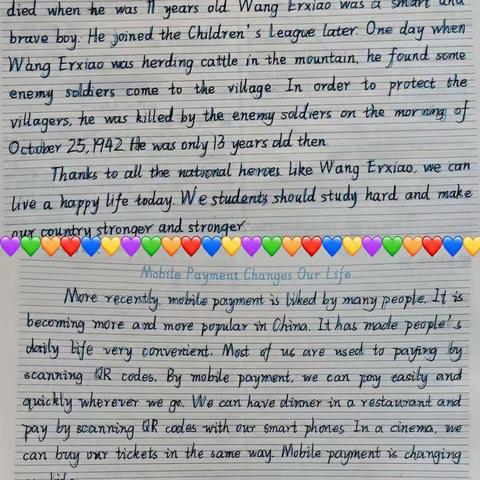 died when he was 11 years old. Wang Erxiao was a smart and
brave boy. He joined the Children's League later. One day when
Wang Erxiao was herding cattle in the mountain, he found some
enemy soldiers come to the village. In order to protect the
villagers, he was killed by the enemy soldiers on the morning of
October 25,1942. He was only 13 years old then.
Thanks to all the national heroes like Wang Erxiao, we can
live a happy life today. We students should study hard and make
our country stronger and stronger.
Mobile Payment Changes Our Life
More recently, mobile payment is liked by many people. It is
becoming more and more popular in China. It has made people's
daily life very convenient. Most of us are used to paying by
scanning QR codes. By mobile payment, we can pay easily and
quickly wherever we go. We can have dinner in a restaurant and
pay by scanning QR codes with our smart phones. In a cinema, we
can buy our tickets in the same way. Mobile payment is changing